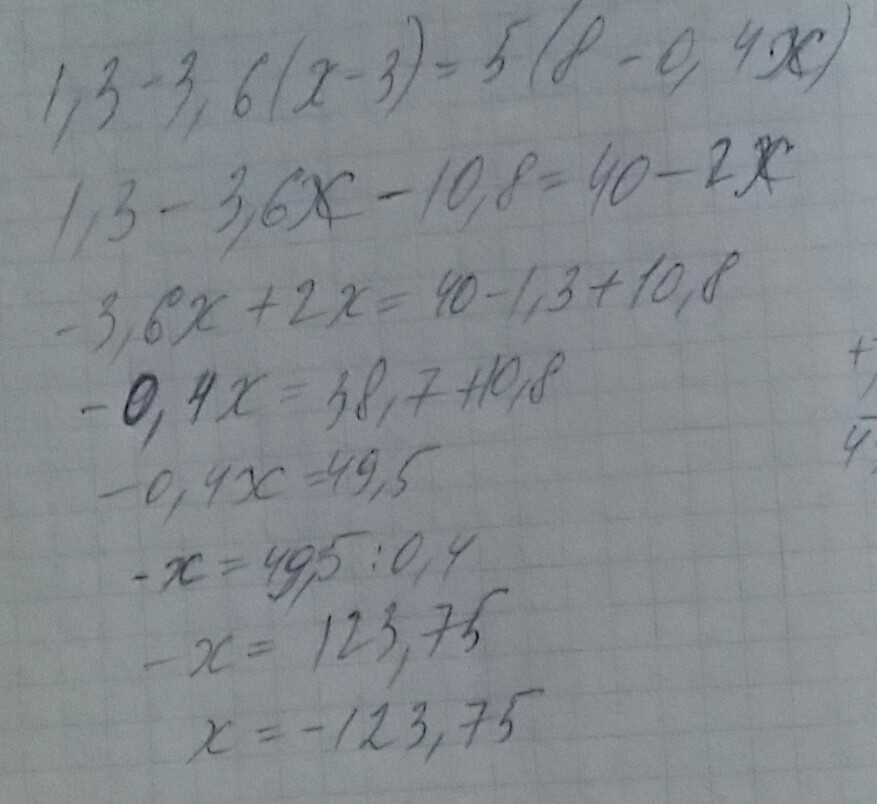 1,3-3,6(x-3)=5(8-0,4x)
1,3-3,6x-10,8=40-2x
-3,6x+2x=40-1,3+10,8
-0,4x=38,7+10,8
-0,4x=49,5
-x=49,5:0,4
-x=123,75
x=-123,75
+